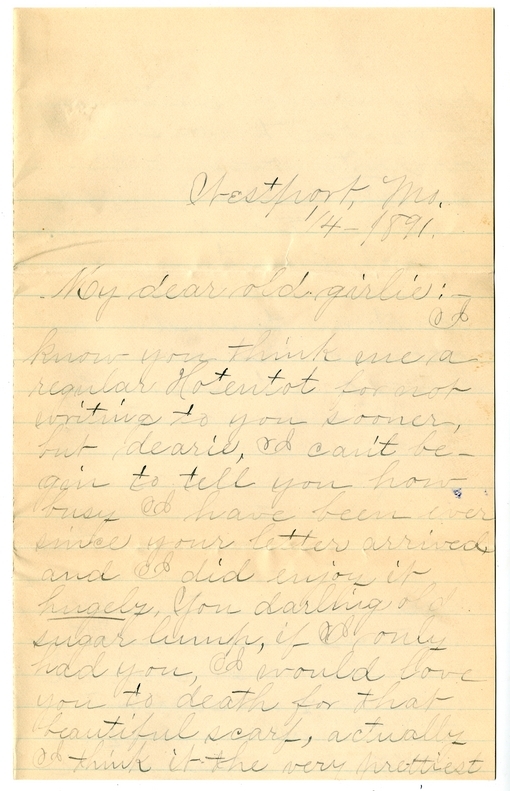 Westport, Mo.
1/4-1891.
My dear old girlie:-
I
know you think me a
regular Hotentot for not
writing to you sooner,
but dearie, I can't be-
gin to tell you how
busy I have been ever
since your letter arrived
and I did enjoy it
hugely. You darling old
sugar lump, if I only
had you, I would love
you to death for that
beautiful scarf, actually
I think it the very prettiest